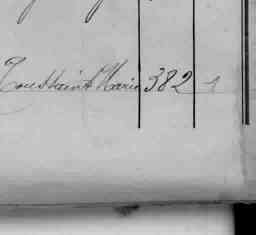 Toussaint Marie 382 1